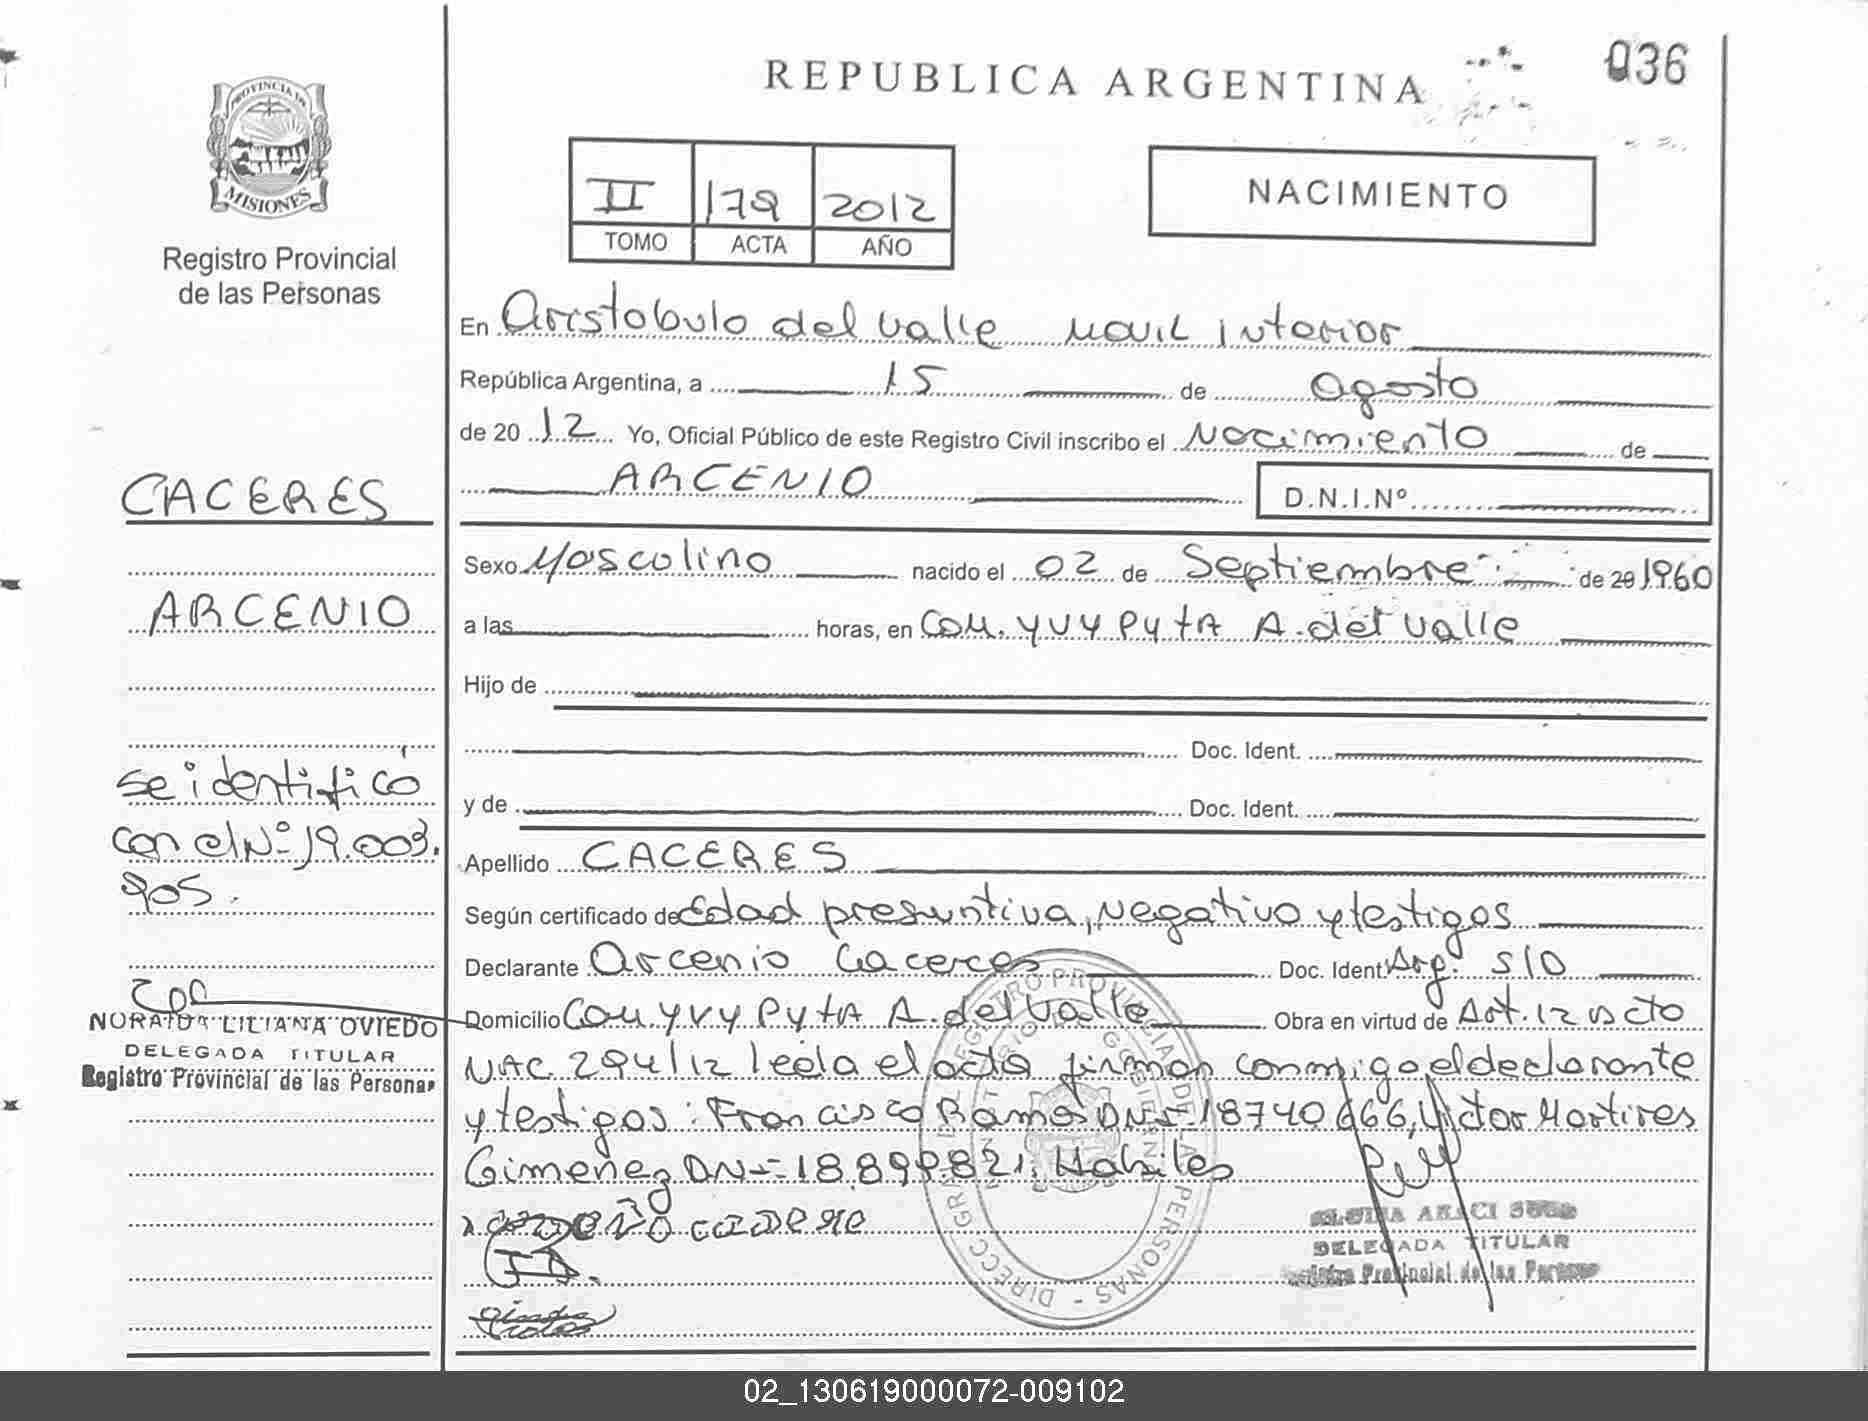 036
REPUBLICA ARGENTINA
PROVINCIA DE
MISIONES
Registro Provincial
de las Personas
II 179 2012
TOMO ACTA AÑO
NACIMIENTO
En Aristobulo del valle Movil interior
República Argentina, a 15 de agosto
de 2012 Yo, Oficial Público de este Registro Civil inscribo el Nacimiento de
ARCENIO D.N.I.Nº
CACERES
Sexo Masculino nacido el 02 de Septiembre de 20 1960
ARCENIO
a las horas, en Com. YVY PytA A. del valle
Hijo de
Doc. Ident.
y de Doc. Ident.
se identificó
con el Nº 19.003.
905.
Apellido CACERES
Según certificado de Edad presuntiva, Negativo y testigos
Declarante Arcenio Caceres Doc. Ident. Arg. S/D
Domicilio Com. YVY PytA A. del Valle Obra en virtud de Art. 12 Dcto
NAC. 294/12 leída el acta firman conmigo el declarante
y testigos: Francisco Ramos DNI 18740666, Victor Martires
Gimenez DNI 18.899.821. Habiles
NORAIDA LILIANA OVIEDO
DELEGADA TITULAR
Registro Provincial de las Personas
DELEGADA TITULAR
Registro Provincial de las Personas
02_130619000072-009102